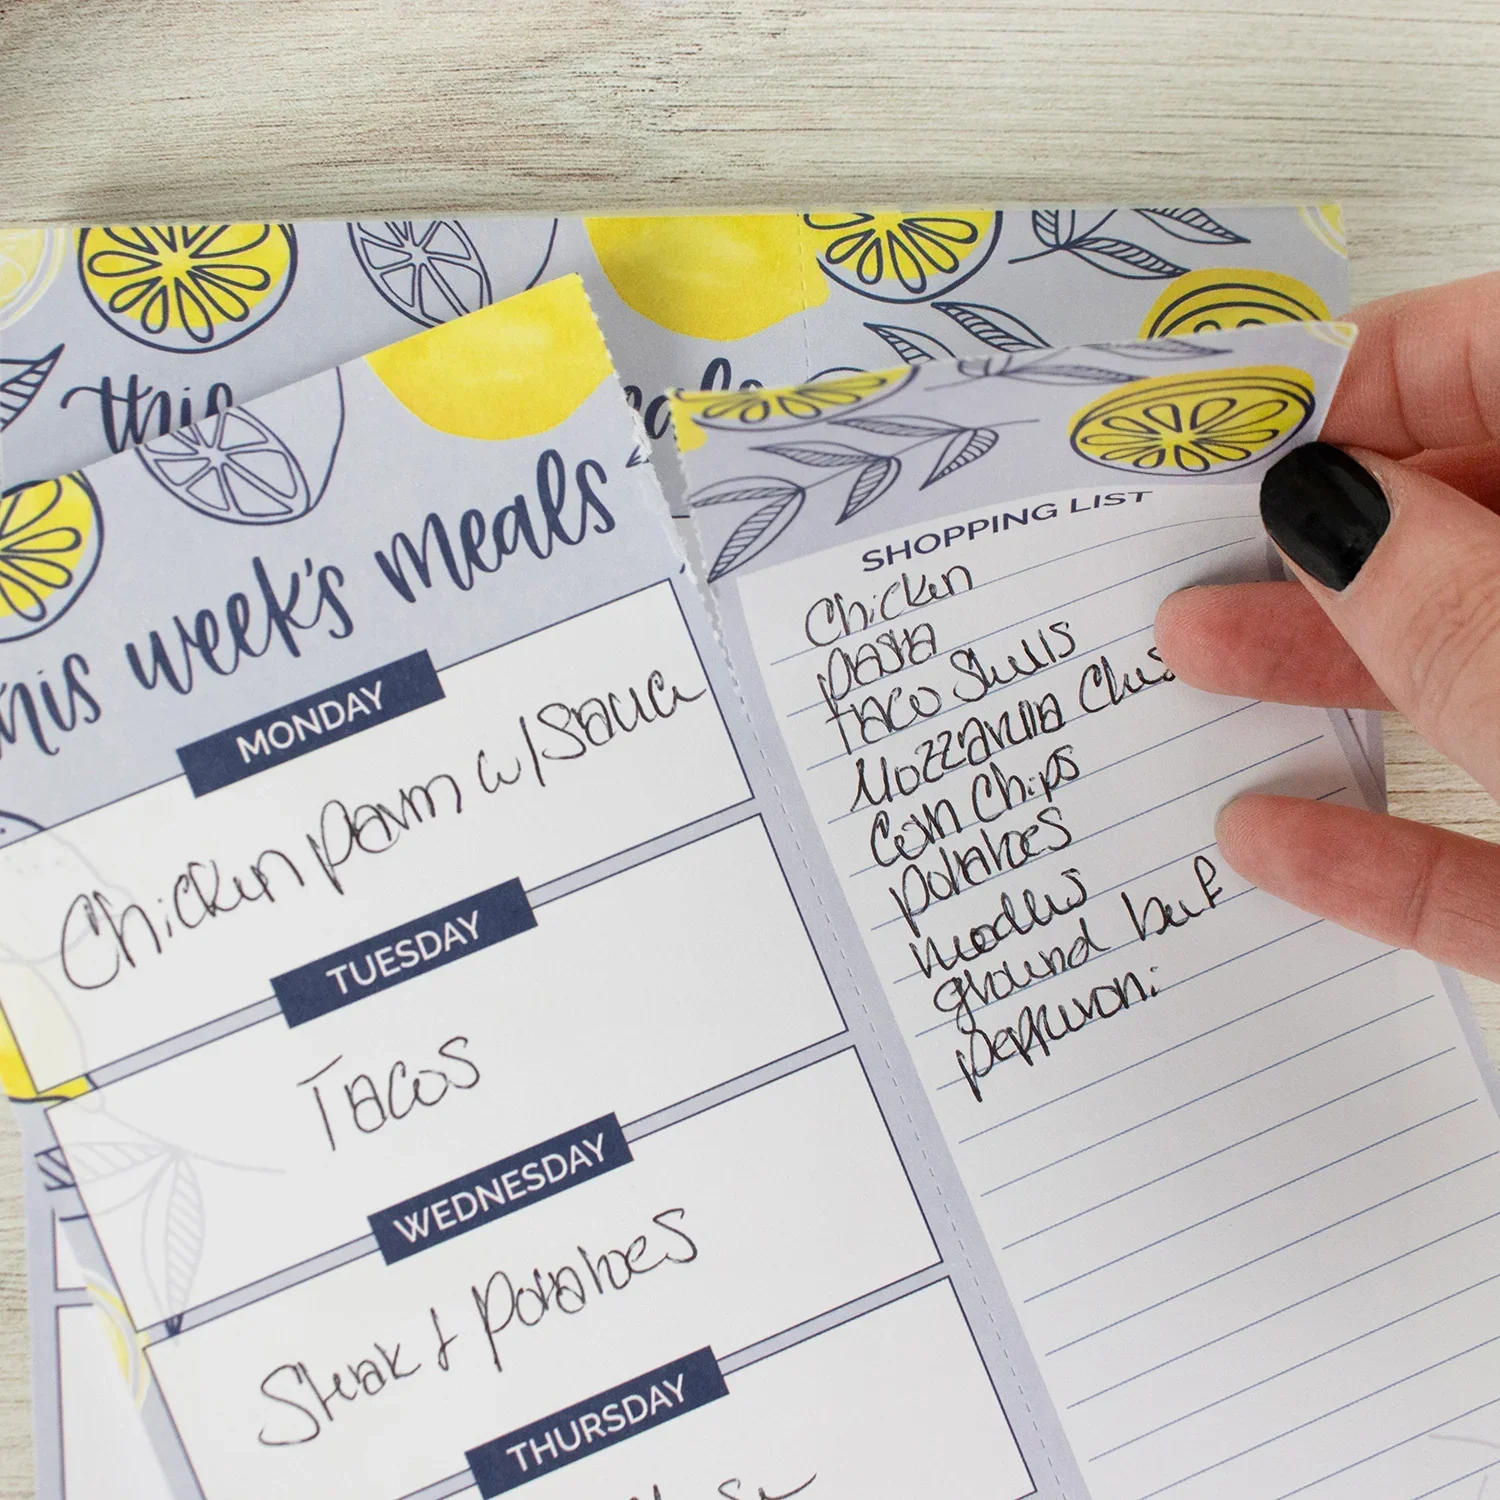 this
this week's meals
MONDAY
Chicken parm w/sauce
TUESDAY
Tacos
WEDNESDAY
Steak & potatoes
THURSDAY
SHOPPING LIST
Chicken
pasta
taco Shells
Mozzarella
Corn Chips
potatoes
noodles
ground beef
pepperoni